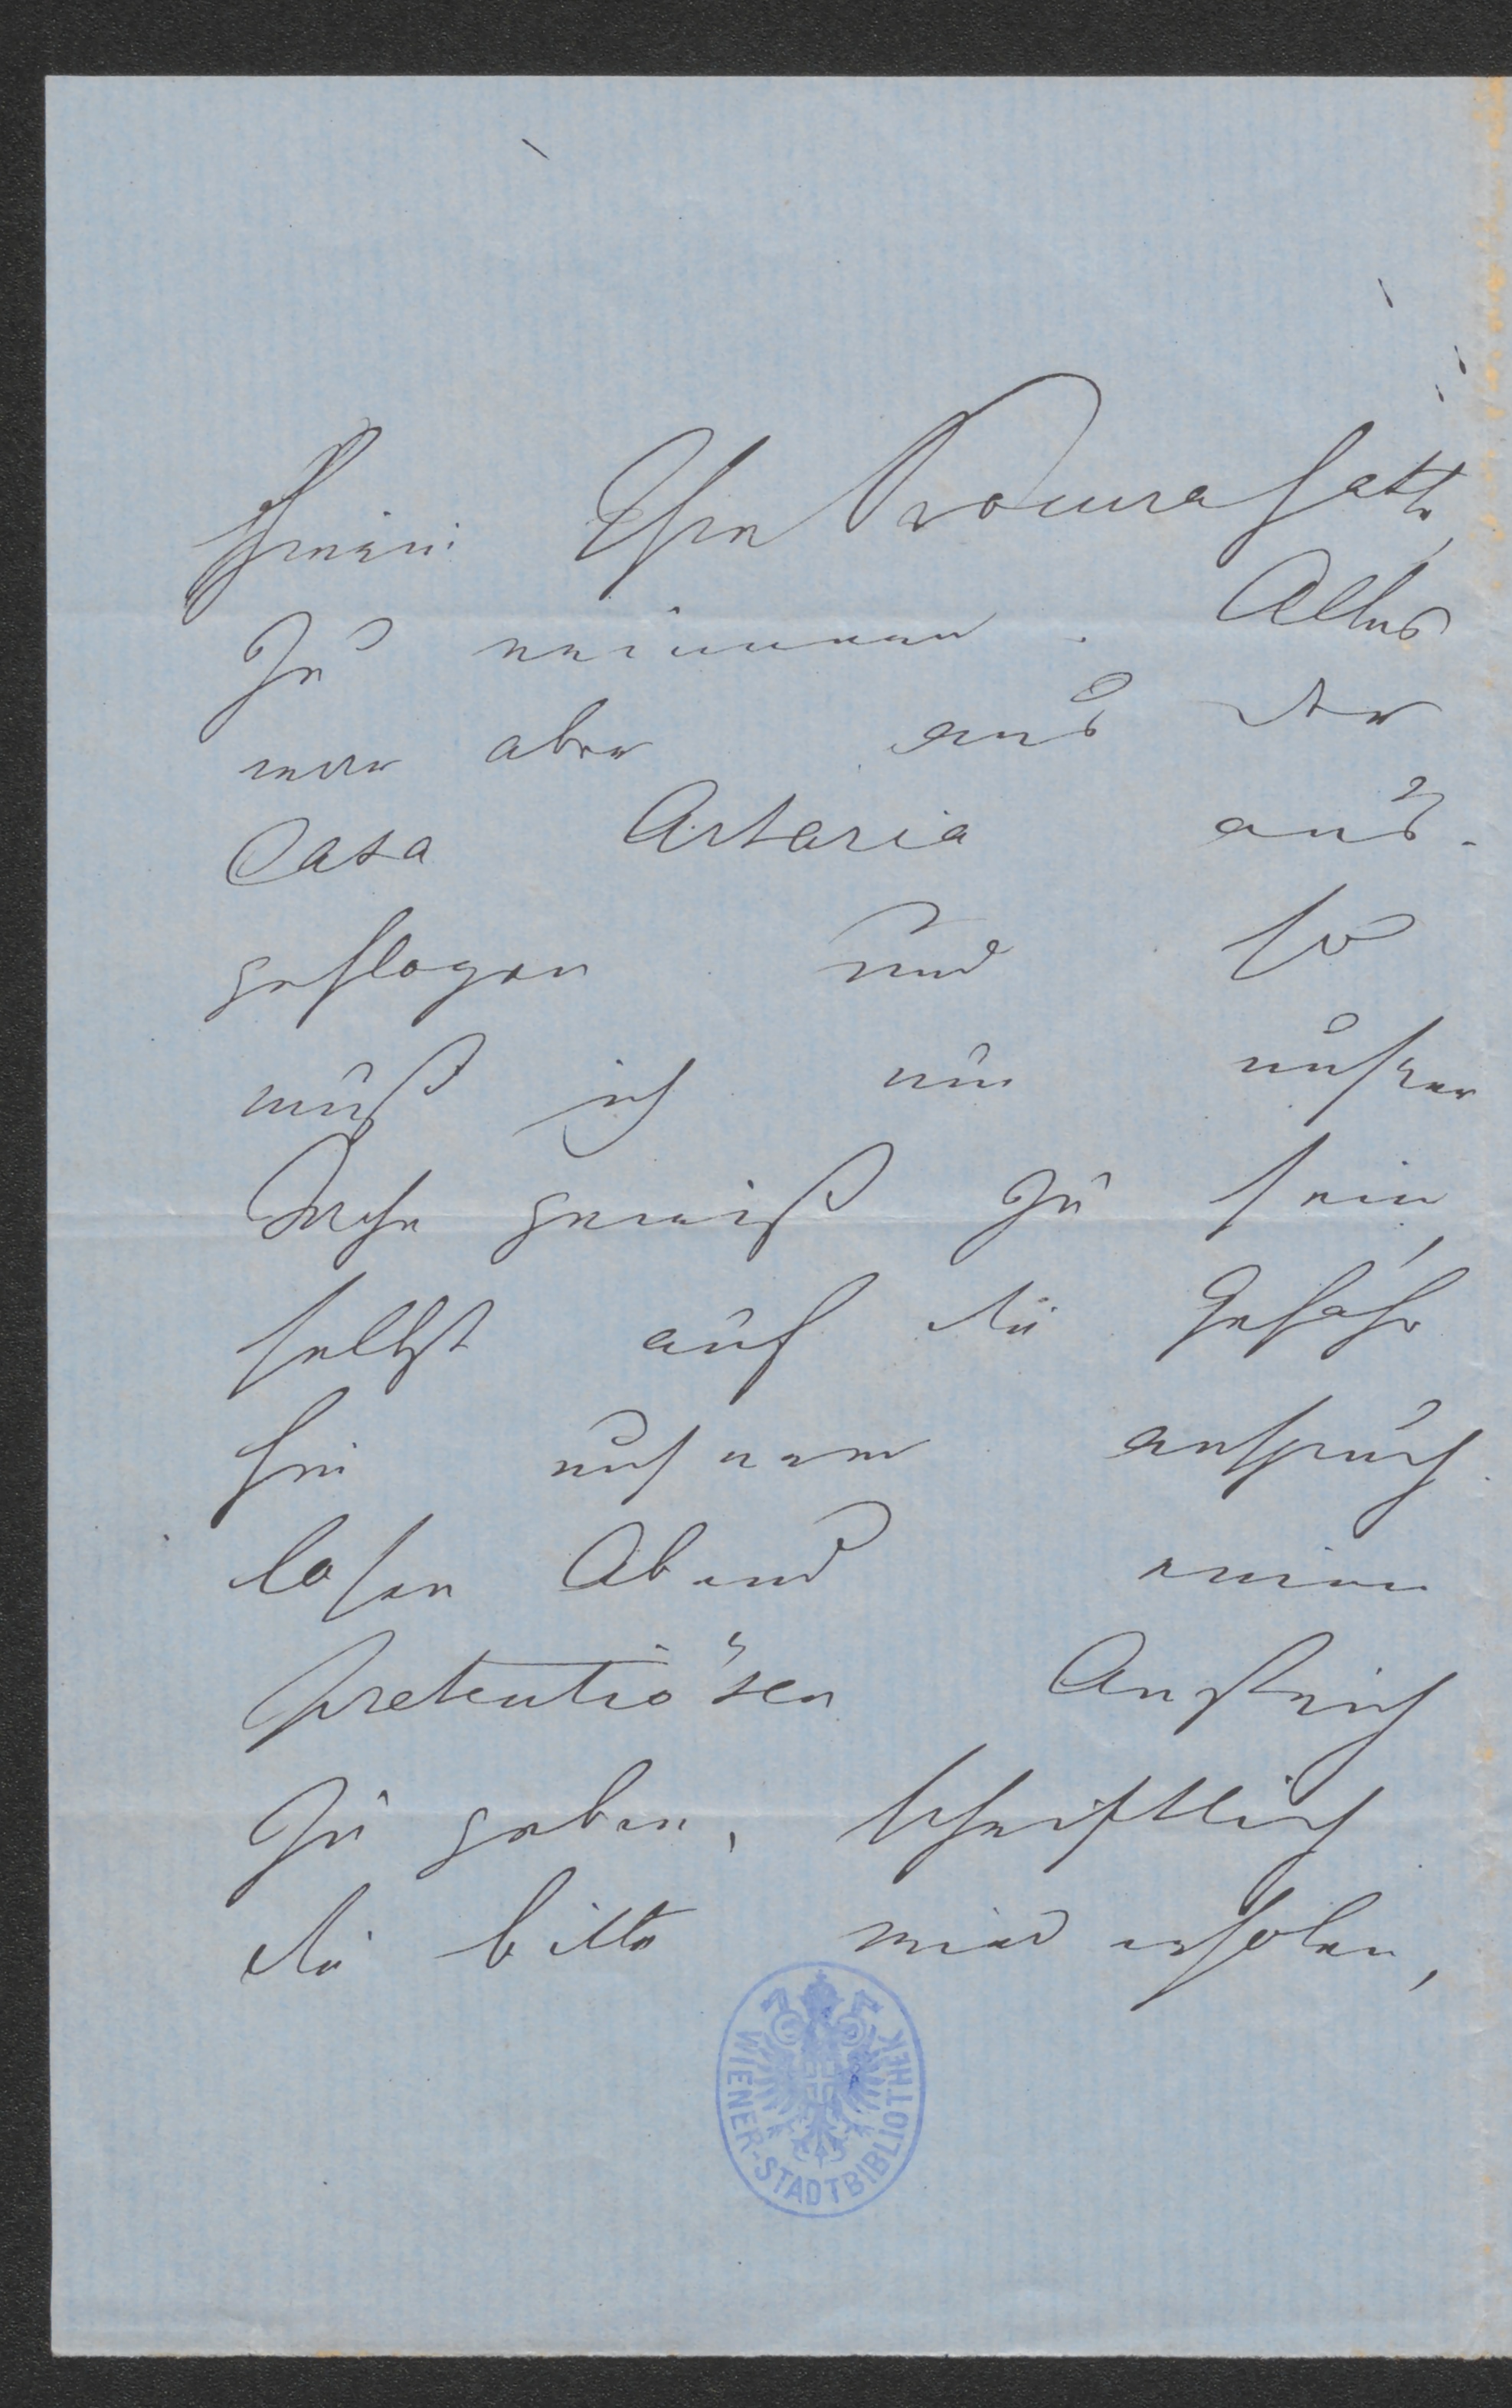 Ihre Donnerstatt
zu erinnern. Alles
war aber aus der
Casa Artaria aus-
geflogen und so
muß ich um unserer
Sache gewiß zu sein,
selbst auf die Gefahr
hin unserem anspruch
losen Abend einen
pretentiösen Anstrich
zu geben, schriftlich
die bitte wiederholen,
WIENER-STADTBIBLIOTHEK